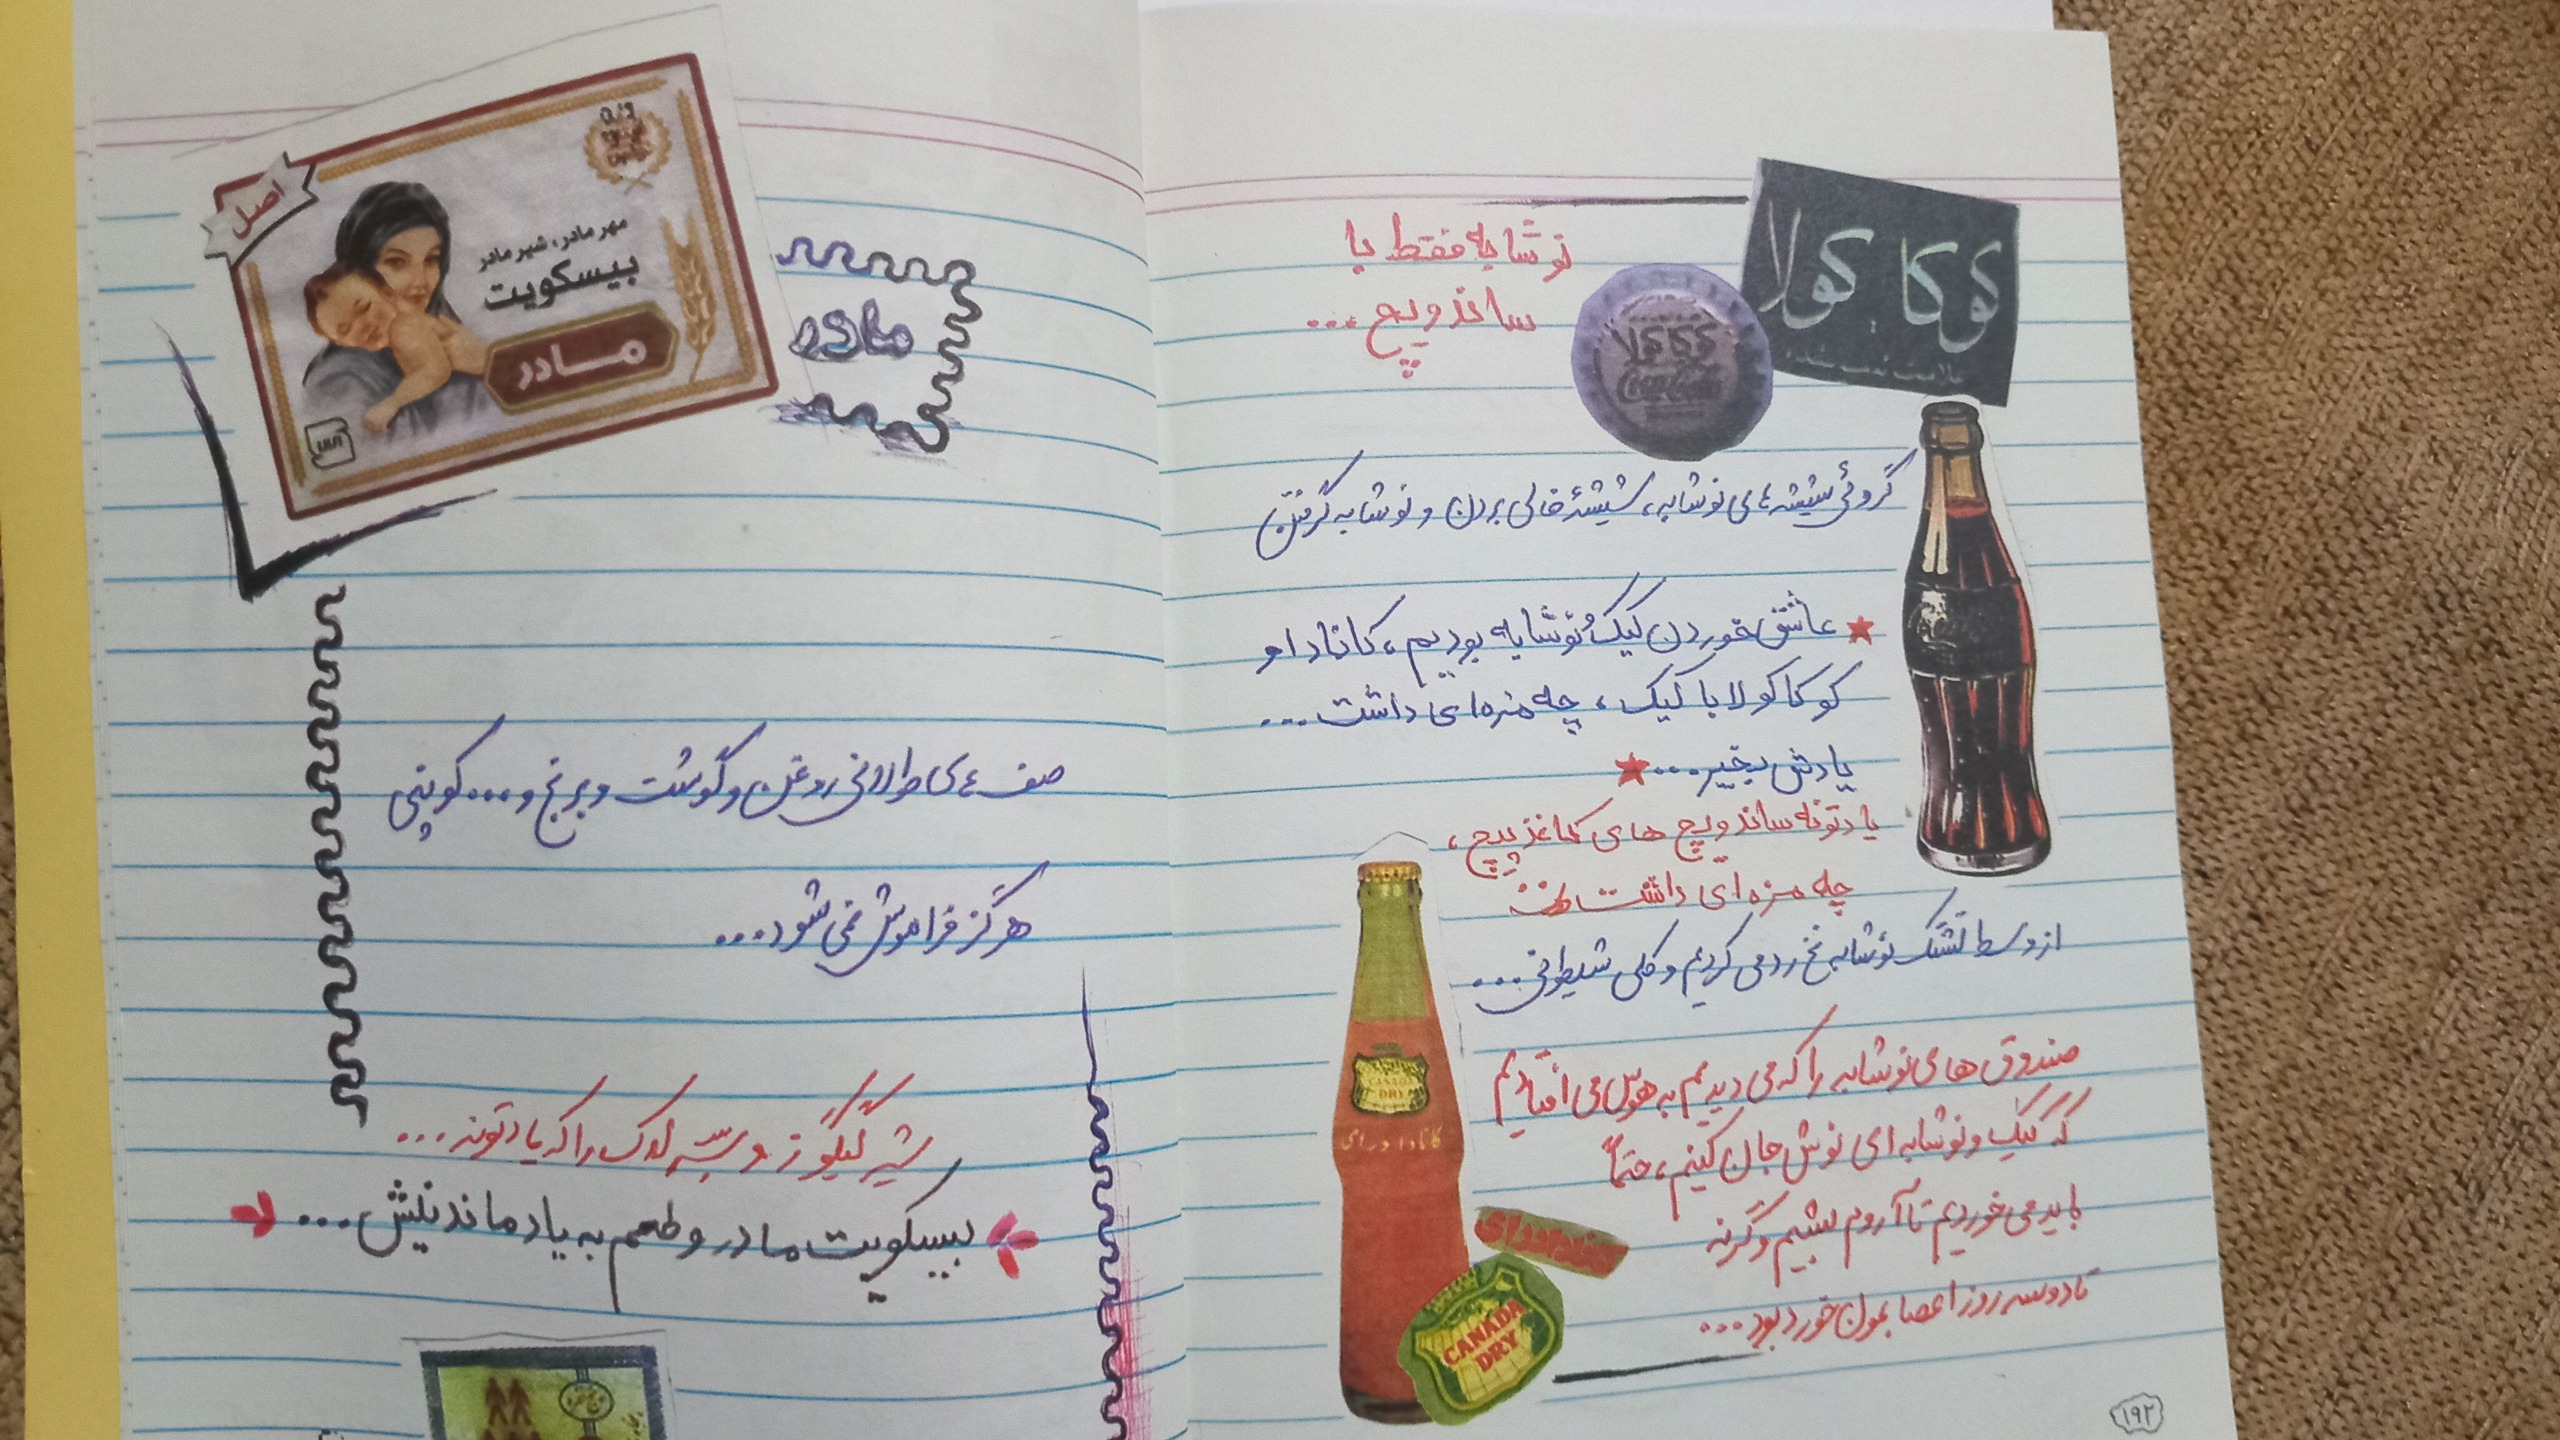 نوشابه فقط با
ساندویچ...
کوکا کولا
کوکا کولا
Coca-Cola
گروئی شیشه های نوشابه، شیشهٔ خالی بردن و نوشابه گرفتن
عاشق خوردن کیک و نوشابه بودیم، کانادا و
کوکاکولا با کیک، چه مزه‌ای داشت...
یادش بخیر...
یادتونه ساندویچ های کاغذ پیچ،
چه مزه ای داشت
از وسط تشتک نوشابه نخ رد می کردیم و کلی شیطونی...
صندوق های نوشابه را که می دیدیم به هوس می افتادیم
که کیک و نوشابه ای نوش جان کنیم، حتماً
باید می خوردیم تا آروم بشیم وگرنه
تا دو سه روز اعصابمون خورد بود...
CANADA
DRY
کانادا درای
کانادا درای
CANADA
DRY
۱۹۲
اصل
مهر مادر، شیر مادر
بیسکویت
مادر
مادر
صف های طولانی روغن و گوشت و برنج و... کوپنی
هرگز فراموش نمی شود...
شیر گیگوز و سرلاک را که یادتونه...
بیسکویت مادر و طعم به یاد ماندنیش...